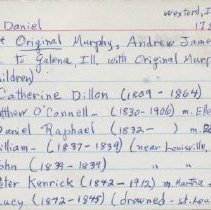 Wexford, I
Daniel
Original Murphy, Andrew Jame
to Galena, Ill, with Original Murp
children)
Catherine Dillon (1809 - 1864)
tthew O'Connell - (1830-1906) m. Elle
Daniel Raphael (1832- ) m.
illiam - (1837-1839) (near Louisville,
ohn (1839-1839) " "
ter Kenrick (1842-1912) m. Martha
ucy (1842-1845) (drowned - St. Lou